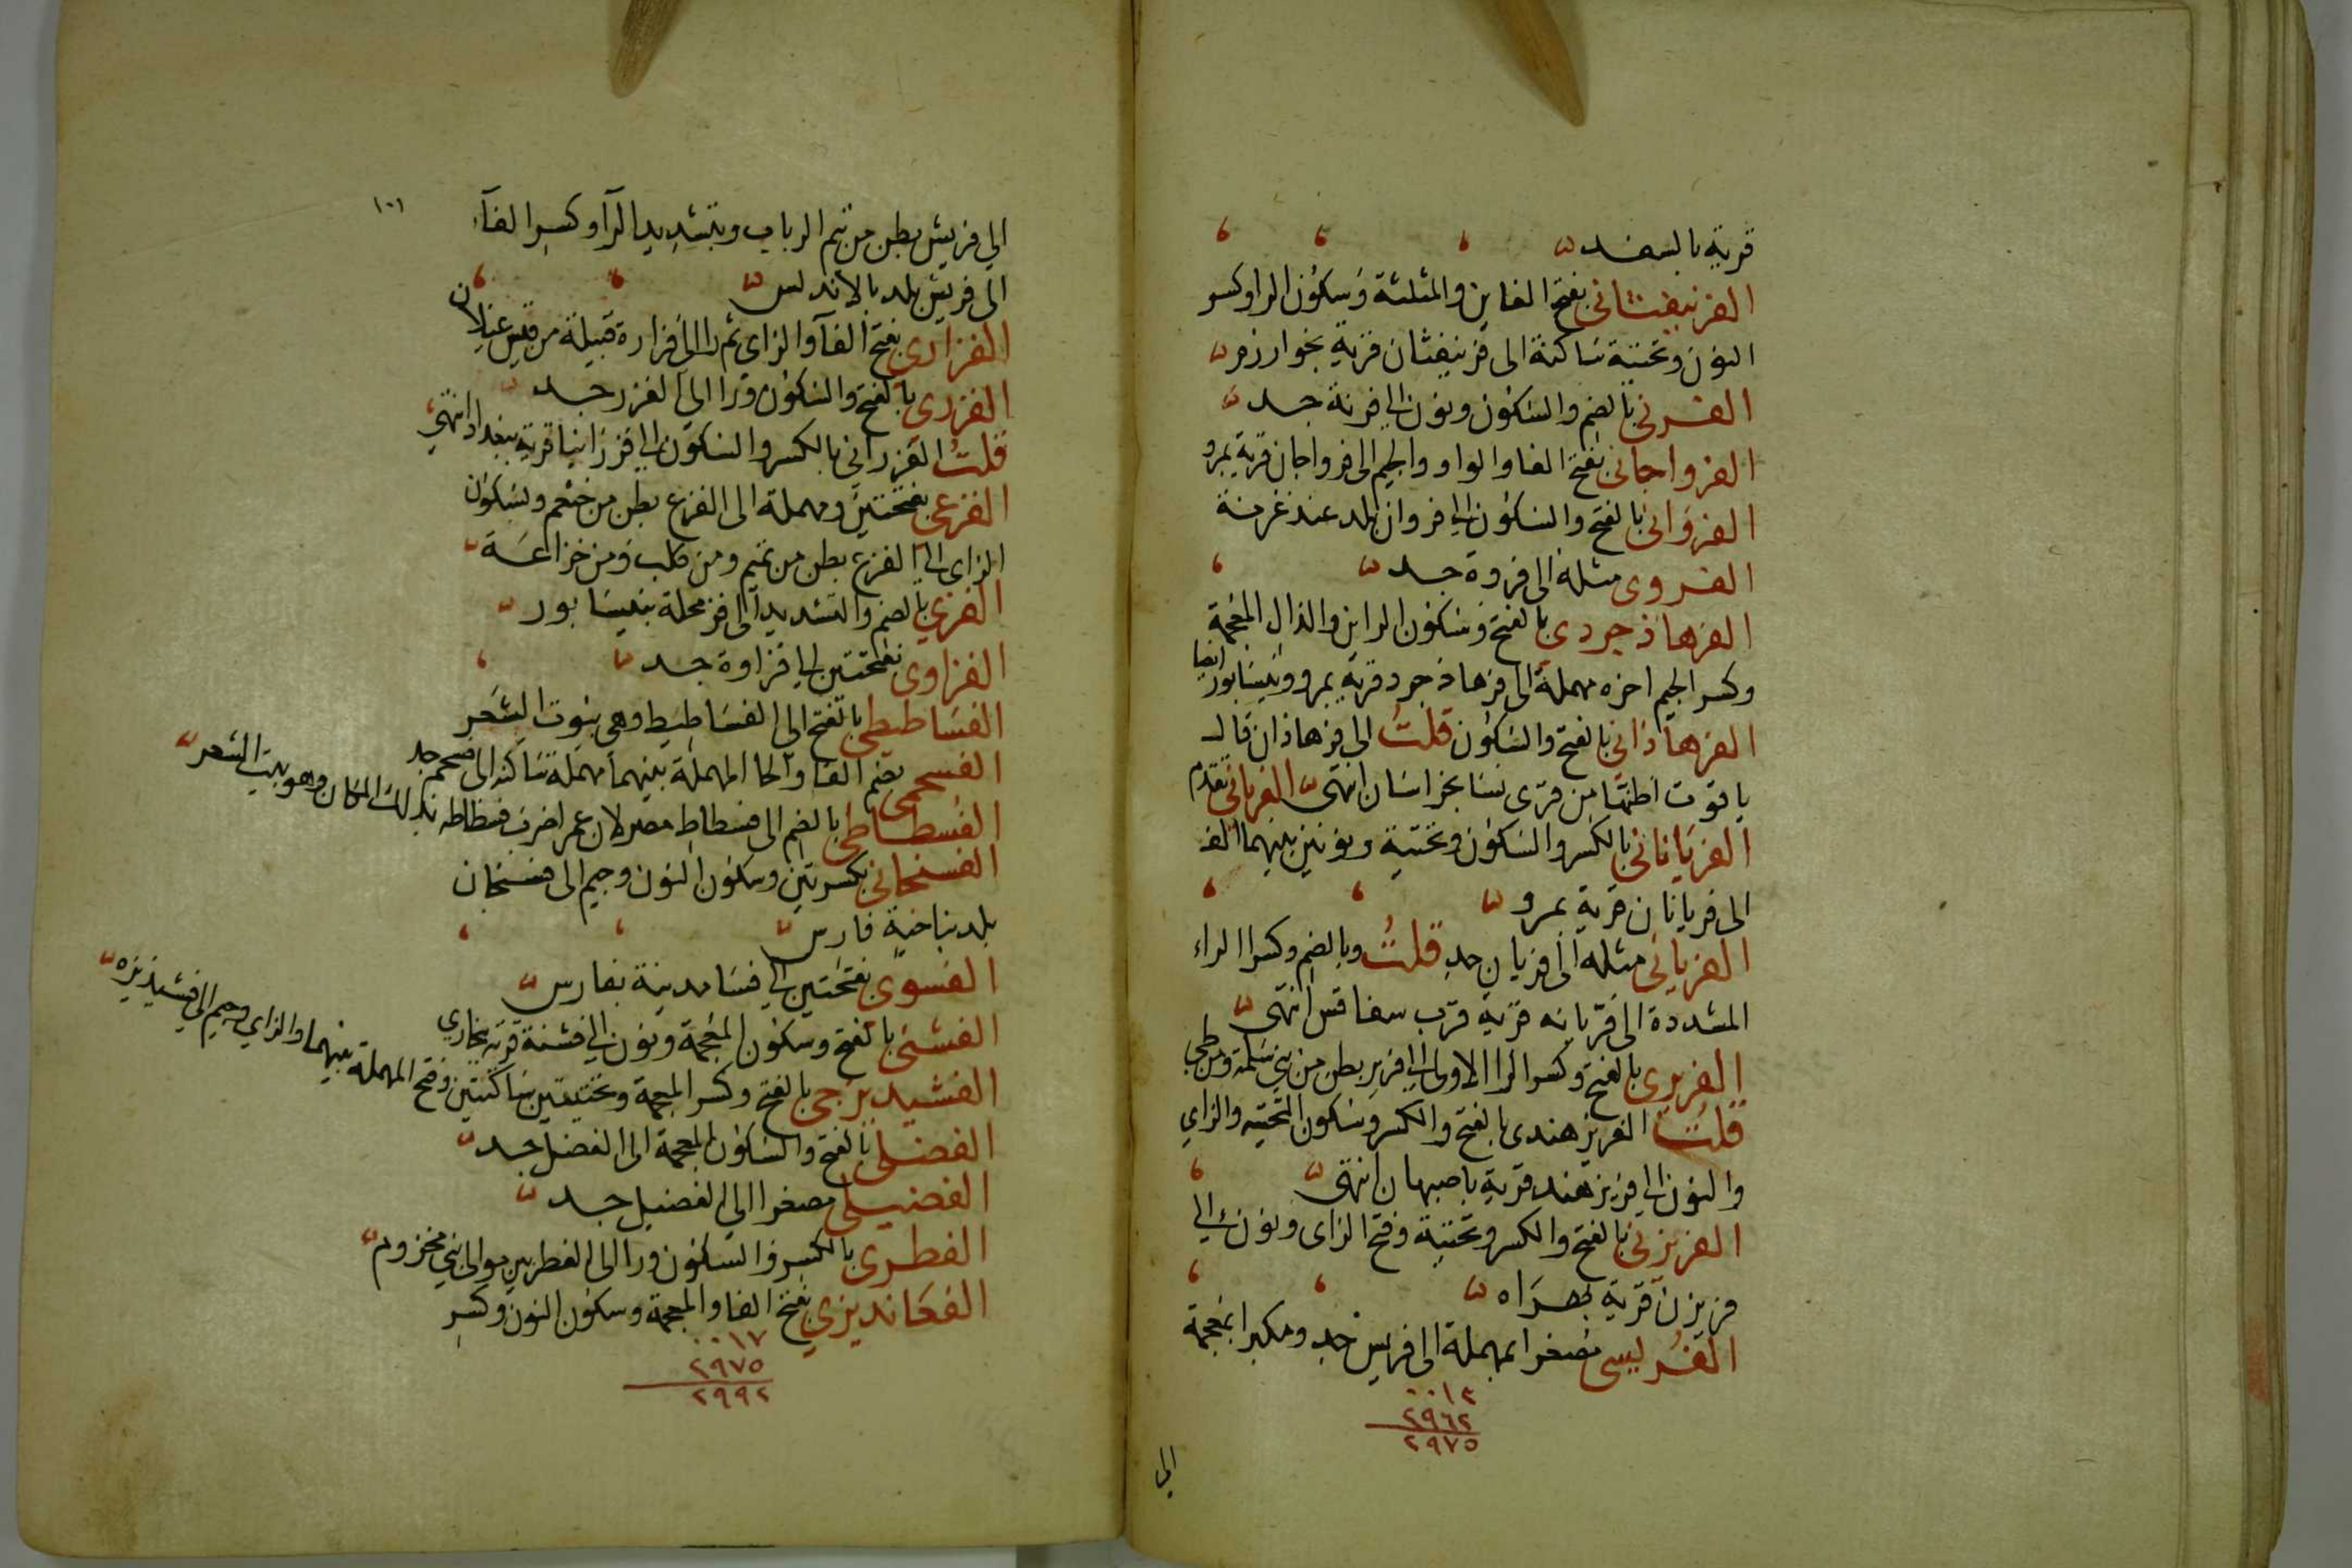 قرية بالسغد
الفرنيفثانى بفتح الفاين والمثلثة وسكون الرا وكسر
النون وتحتية ساكنة الى فرنيفثان قرية بخوارزم
الفرنى بالضم والسكون ونون الى فرنة جد
الفرواجانى بفتح الفا والواو والجيم الى فرواجان قرية بمرو
الفروانى بالفتح والسكون الى فروان بلد عند غزنة
الفروى مثله الى فروة جد
الفرهاذجردى بالفتح وسكون الراين والذال المعجمة
وكسر الجيم اخره مهملة الى فرهاذجرد قرية بمرو ونيسابور ايضا
الفرهاذانى بالفتح والسكون قلت الى فرهاذان قال
ياقوت اظنها من قرى نسا بخراسان انتهى الفريابى تقدم
الفريانانى بالكسر والسكون وتحتية ونونين بينهما الف
الى فريانان قرية بمرو
الفريانى مثله الى فريان جد قلت وبالضم وكسر الراء
المشددة الى فريانه قرية قرب سفاقس انتهى
الفريرى بالفتح وكسر الرا الاولى الى فرير بطن من بنى سلمة ومن طى
قلت الفريزهندى بالفتح والكسر وسكون التحتيه والزاي
والنون الى فريزهند قرية باصبهان انتهى
الفريزنى بالفتح والكسر وتحتية وفتح الزاى ونون الى
فريزن قرية بهراه
الفريسى مصغرا بمهملة الى فريس جد ومكبرا بمعجمة
٠٠١٣
٢٩٦٢
٢٩٧٥
الى
١٠١
الى فريش بطن من تيم الرباب وبتشديد الرآ وكسر الفآء
الى فريش بلد بالاندلس
الفزارى بفتح الفآ والزاي ثم را الى فزارة قبيلة من قيس عيلان
الفزرى بالفتح والسكون ورا الى الفزر جد
قلت الفزرانى بالكسر والسكون الى فزرانيا قرية ببغداد انتهى
الفزعى بفتحتين ومهملة الى الفزع بطن من خثعم وبسكون
الزاى الى الفزع بطن من تميم ومن كلب ومن خزاعة
الفزي بالضم والتشديد الى فز محلة بنيسابور
الفزاوى بفتحتين الى فزاوة جد
الفساطيطى بالفتح الى الفساطيط وهى بيوت الشعر
الفسحمى بضم الفا والحا المهملة بينهما مهملة ساكنة الى فسحم جد
الفسطاطى بالضم الى فسطاط مصر لان عمرا ضرب فسطاطه بذلك المكان وهو بيت الشعر
الفسنجانى بكسرتين وسكون النون وجيم الى فسنجان
بلد بناحية فارس
الفسوى بفتحتين الى فسا مدينة بفارس
الفشنى بالفتح وسكون المعجمة ونون الى فشنة قرية ببخارى
الفشيديزجى بالفتح وكسر المعجمة وتحتيتين ساكنتين وفتح المهملة بينهما والزاي وجيم الى فشيديزه
الفضلى بالفتح والسكون المعجمة الى الفضل جد
الفضيلى مصغرا الى الفضيل جد
الفطرى بالكسر والسكون ورا الى الفطريين موالى بنى مخزوم
الفغانديزي بفتح الفا والمعجمة وسكون النون وكسر
٠٠١٧
٢٩٧٥
٢٩٩٢